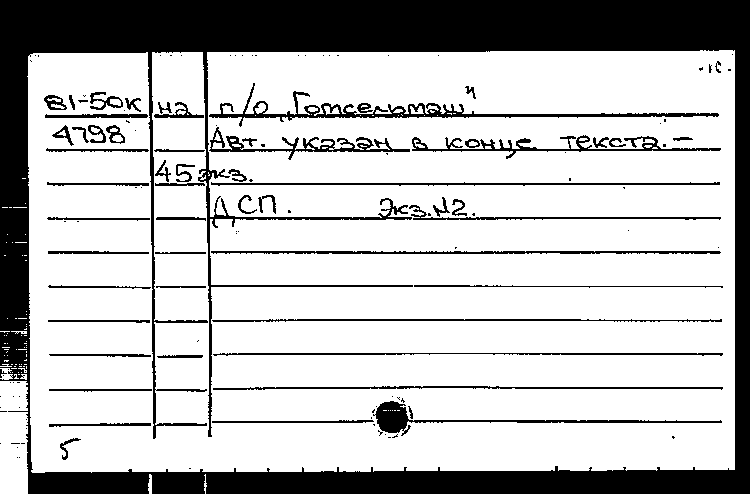 81-50к на п/о „Гомсельмаш".
4798 Авт. указан в конце текста.-
45 экз.
ДСП. Экз.№2.
5